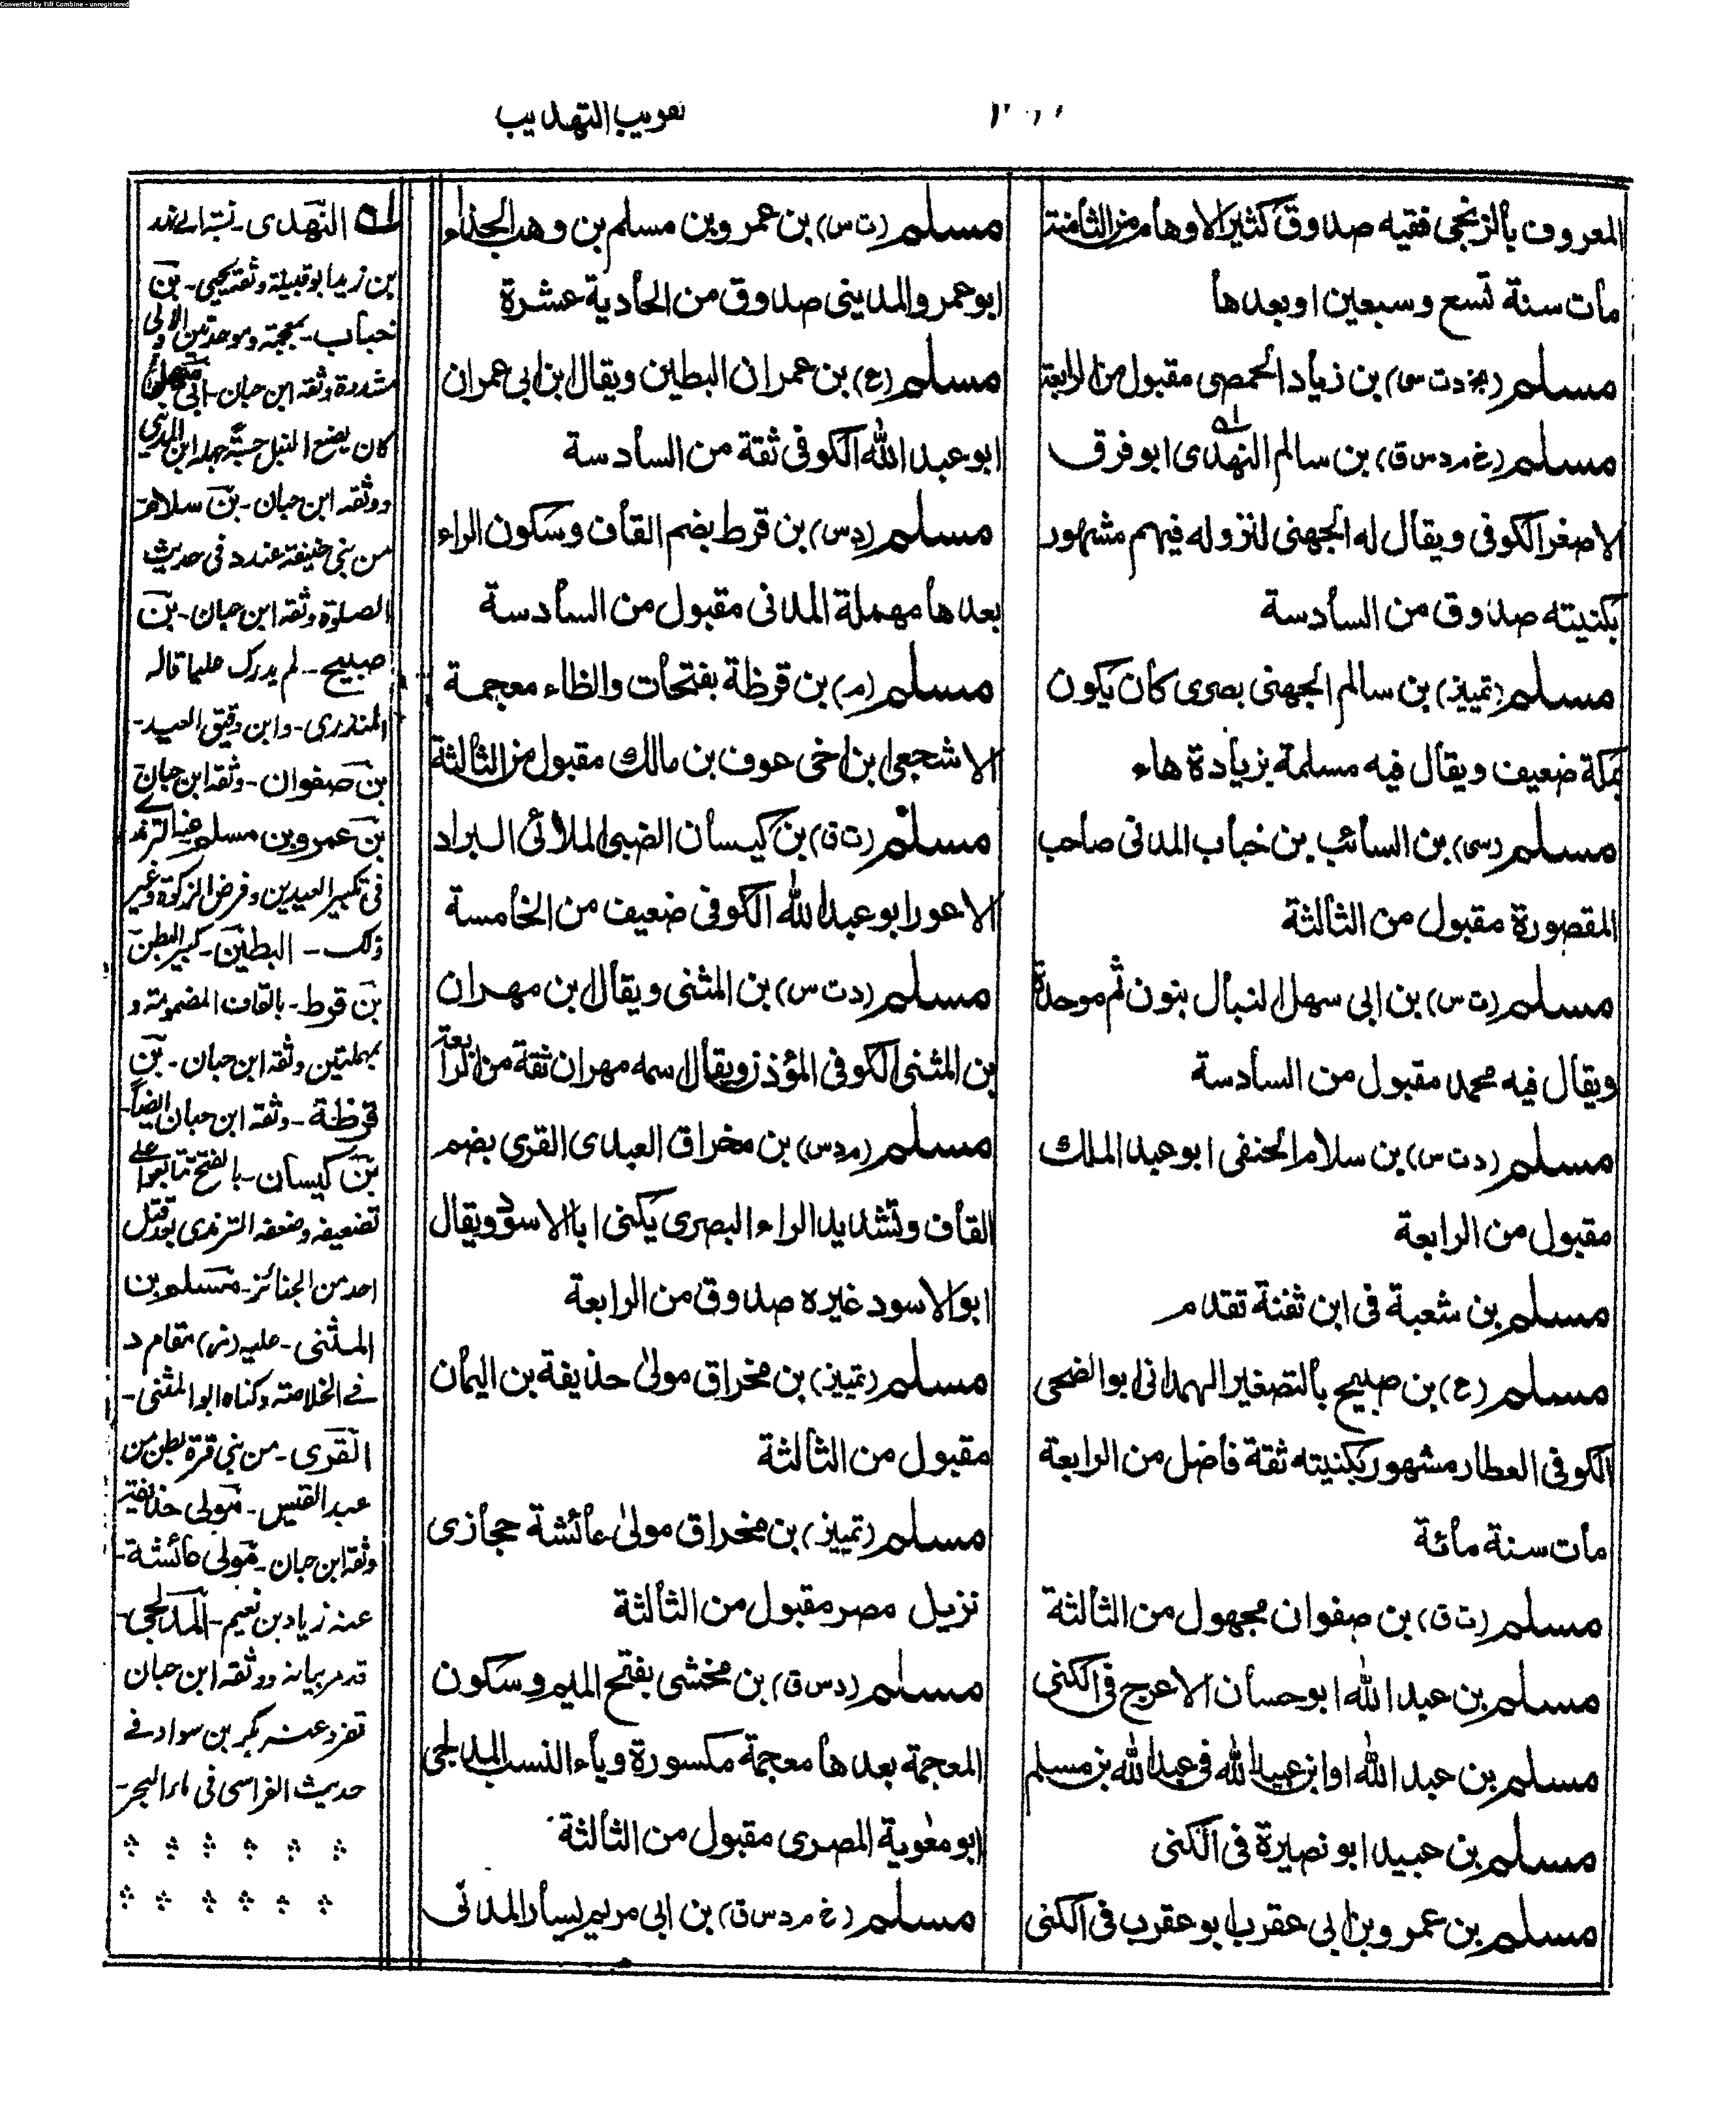 Converted by Tiff Combine - unregistered
تقريب التهذيب
المعروف بالزنجى فقيه صدوق كثير الاوهام من الثامنة
مات سنة تسع وسبعين او بعدها
مسلم (بخ د ت س) بن زياد الحمصى مقبول من الرابعة
مسلم (خ م د س ق) بن سالم النهدى ابو فرق
الاصغر الكوفى ويقال له الجهنى لنزوله فيهم مشهور
بكنيته صدوق من السادسة
مسلم (تمييز) بن سالم الجهنى بصرى كان يكون
بمكة ضعيف ويقال فيه مسلمة بزيادة هاء
مسلم (سى) بن السائب بن خباب المدنى صاحب
المقصورة مقبول من الثالثة
مسلم (ت س) بن ابى سهل النبال بنون ثم موحدة
ويقال فيه محمد مقبول من السادسة
مسلم (د ت س) بن سلام الحنفى ابو عبد الملك
مقبول من الرابعة
مسلم بن شعبة فى ابن ثفنة تقدم
مسلم (ع) بن صبيح بالتصغير الهمدانى ابو الضحى
الكوفى العطار مشهور بكنيته ثقة فاضل من الرابعة
مات سنة مائة
مسلم (ت ق) بن صفوان مجهول من الثالثة
مسلم بن عبد الله ابو حسان الاعرج فى الكنى
مسلم بن عبد الله او ابن عبيد الله فى عبد الله بن مسلم
مسلم بن عبيد ابو نصيرة فى الكنى
مسلم بن عمرو بن ابى عقرب ابو عقرب فى الكنى
مسلم (ت س) بن عمرو بن مسلم بن وهب الحذاء
ابو عمرو المدينى صدوق من الحادية عشرة
مسلم (ع) بن عمران البطين ويقال ابن ابى عمران
ابو عبد الله الكوفى ثقة من السادسة
مسلم (د س) بن قرط بضم القاف وسكون الراء
بعدها مهملة المدنى مقبول من السادسة
مسلم (م) بن قرظة بفتحات والظاء معجمة
الاشجعى ابن اخى عوف بن مالك مقبول من الثالثة
مسلم (ت ق) بن كيسان الضبى الملائى البراد
الاعور ابو عبد الله الكوفى ضعيف من الخامسة
مسلم (د ت س) بن المثنى ويقال ابن مهران
بن المثنى الكوفى المؤذن ويقال اسمه مهران ثقة من الرابعة
مسلم (م د س) بن مخراق العبدى القرى بضم
القاف وتشديد الراء البصرى يكنى ابا الاسود ويقال
ابو الاسود غيره صدوق من الرابعة
مسلم (تمييز) بن مخراق مولى حذيفة بن اليمان
مقبول من الثالثة
مسلم (تمييز) بن مخراق مولى عائشة حجازى
نزيل مصر مقبول من الثالثة
مسلم (د س ق) بن مخشى بفتح الميم وسكون
المعجمة بعدها معجمة مكسورة وياء النسب المدلجى
ابو معوية المصرى مقبول من الثالثة
مسلم (خ م د س ق) بن ابى مريم يسار المدنى
له النهدى - نسبة الى نهد
بن زيد ابو قبيلة وثقه يحيى - بن
خباب - بمعجمة وموحدتين الاولى
مشددة وثقه ابن حبان - ابى سهل
كان يصنع النبل جهله ابن المدينى
ووثقه ابن حبان - بن سلام
من بنى حنيفة عنده فى حديث
الصلوة وثقه ابن حبان - بن
صبيح - لم يدرك عليا قاله
المنذرى - وابن دقيق العيد -
بن صفوان - وثقه ابن حبان
بن عمرو بن مسلم عند الترمذى
فى تكبير العيدين وفرض الزكوة وغير
ذلك - البطين - كبير البطن
بن قرط - بالقاف المضمومة و
بمهملتين وثقه ابن حبان - بن
قرظة - وثقه ابن حبان ايضا -
بن كيسان - بالفتح تابعوا على
تضعيفه وضعفه الترمذى بعد قتل
احد من الجنائز - مسلم بن
المثنى - عليه مقام د
فى الخلاصة وكناه ابو المثنى -
القرى - من بنى قرة بطن من
عبد القيس - مولى حذيفة
وثقه ابن حبان - مولى عائشة -
عنه زياد بن نعيم - المدلجى -
قد مر بيانه ووثقه ابن حبان
تفرد عنه بكر بن سواد فى
حديث الفراسى فى ماء البحر -